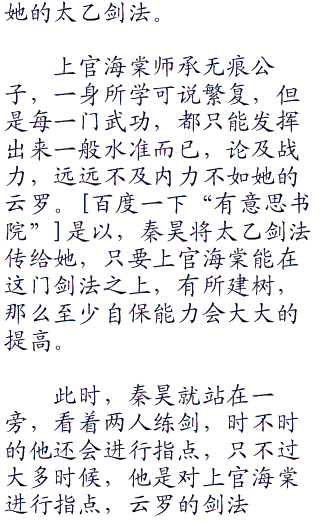 她的太乙剑法。
上官海棠师承无痕公
子，一身所学可说繁复，但
是每一门武功，都只能发挥
出来一般水准而已，论及战
力，远远不及内力不如她的
云罗。[百度一下“有意思书
院”]是以，秦昊将太乙剑法
传给她，只要上官海棠能在
这门剑法之上，有所建树，
那么至少自保能力会大大的
提高。
此时，秦昊就站在一
旁，看着两人练剑，时不时
的他还会进行指点，只不过
大多时候，他是对上官海棠
进行指点，云罗的剑法